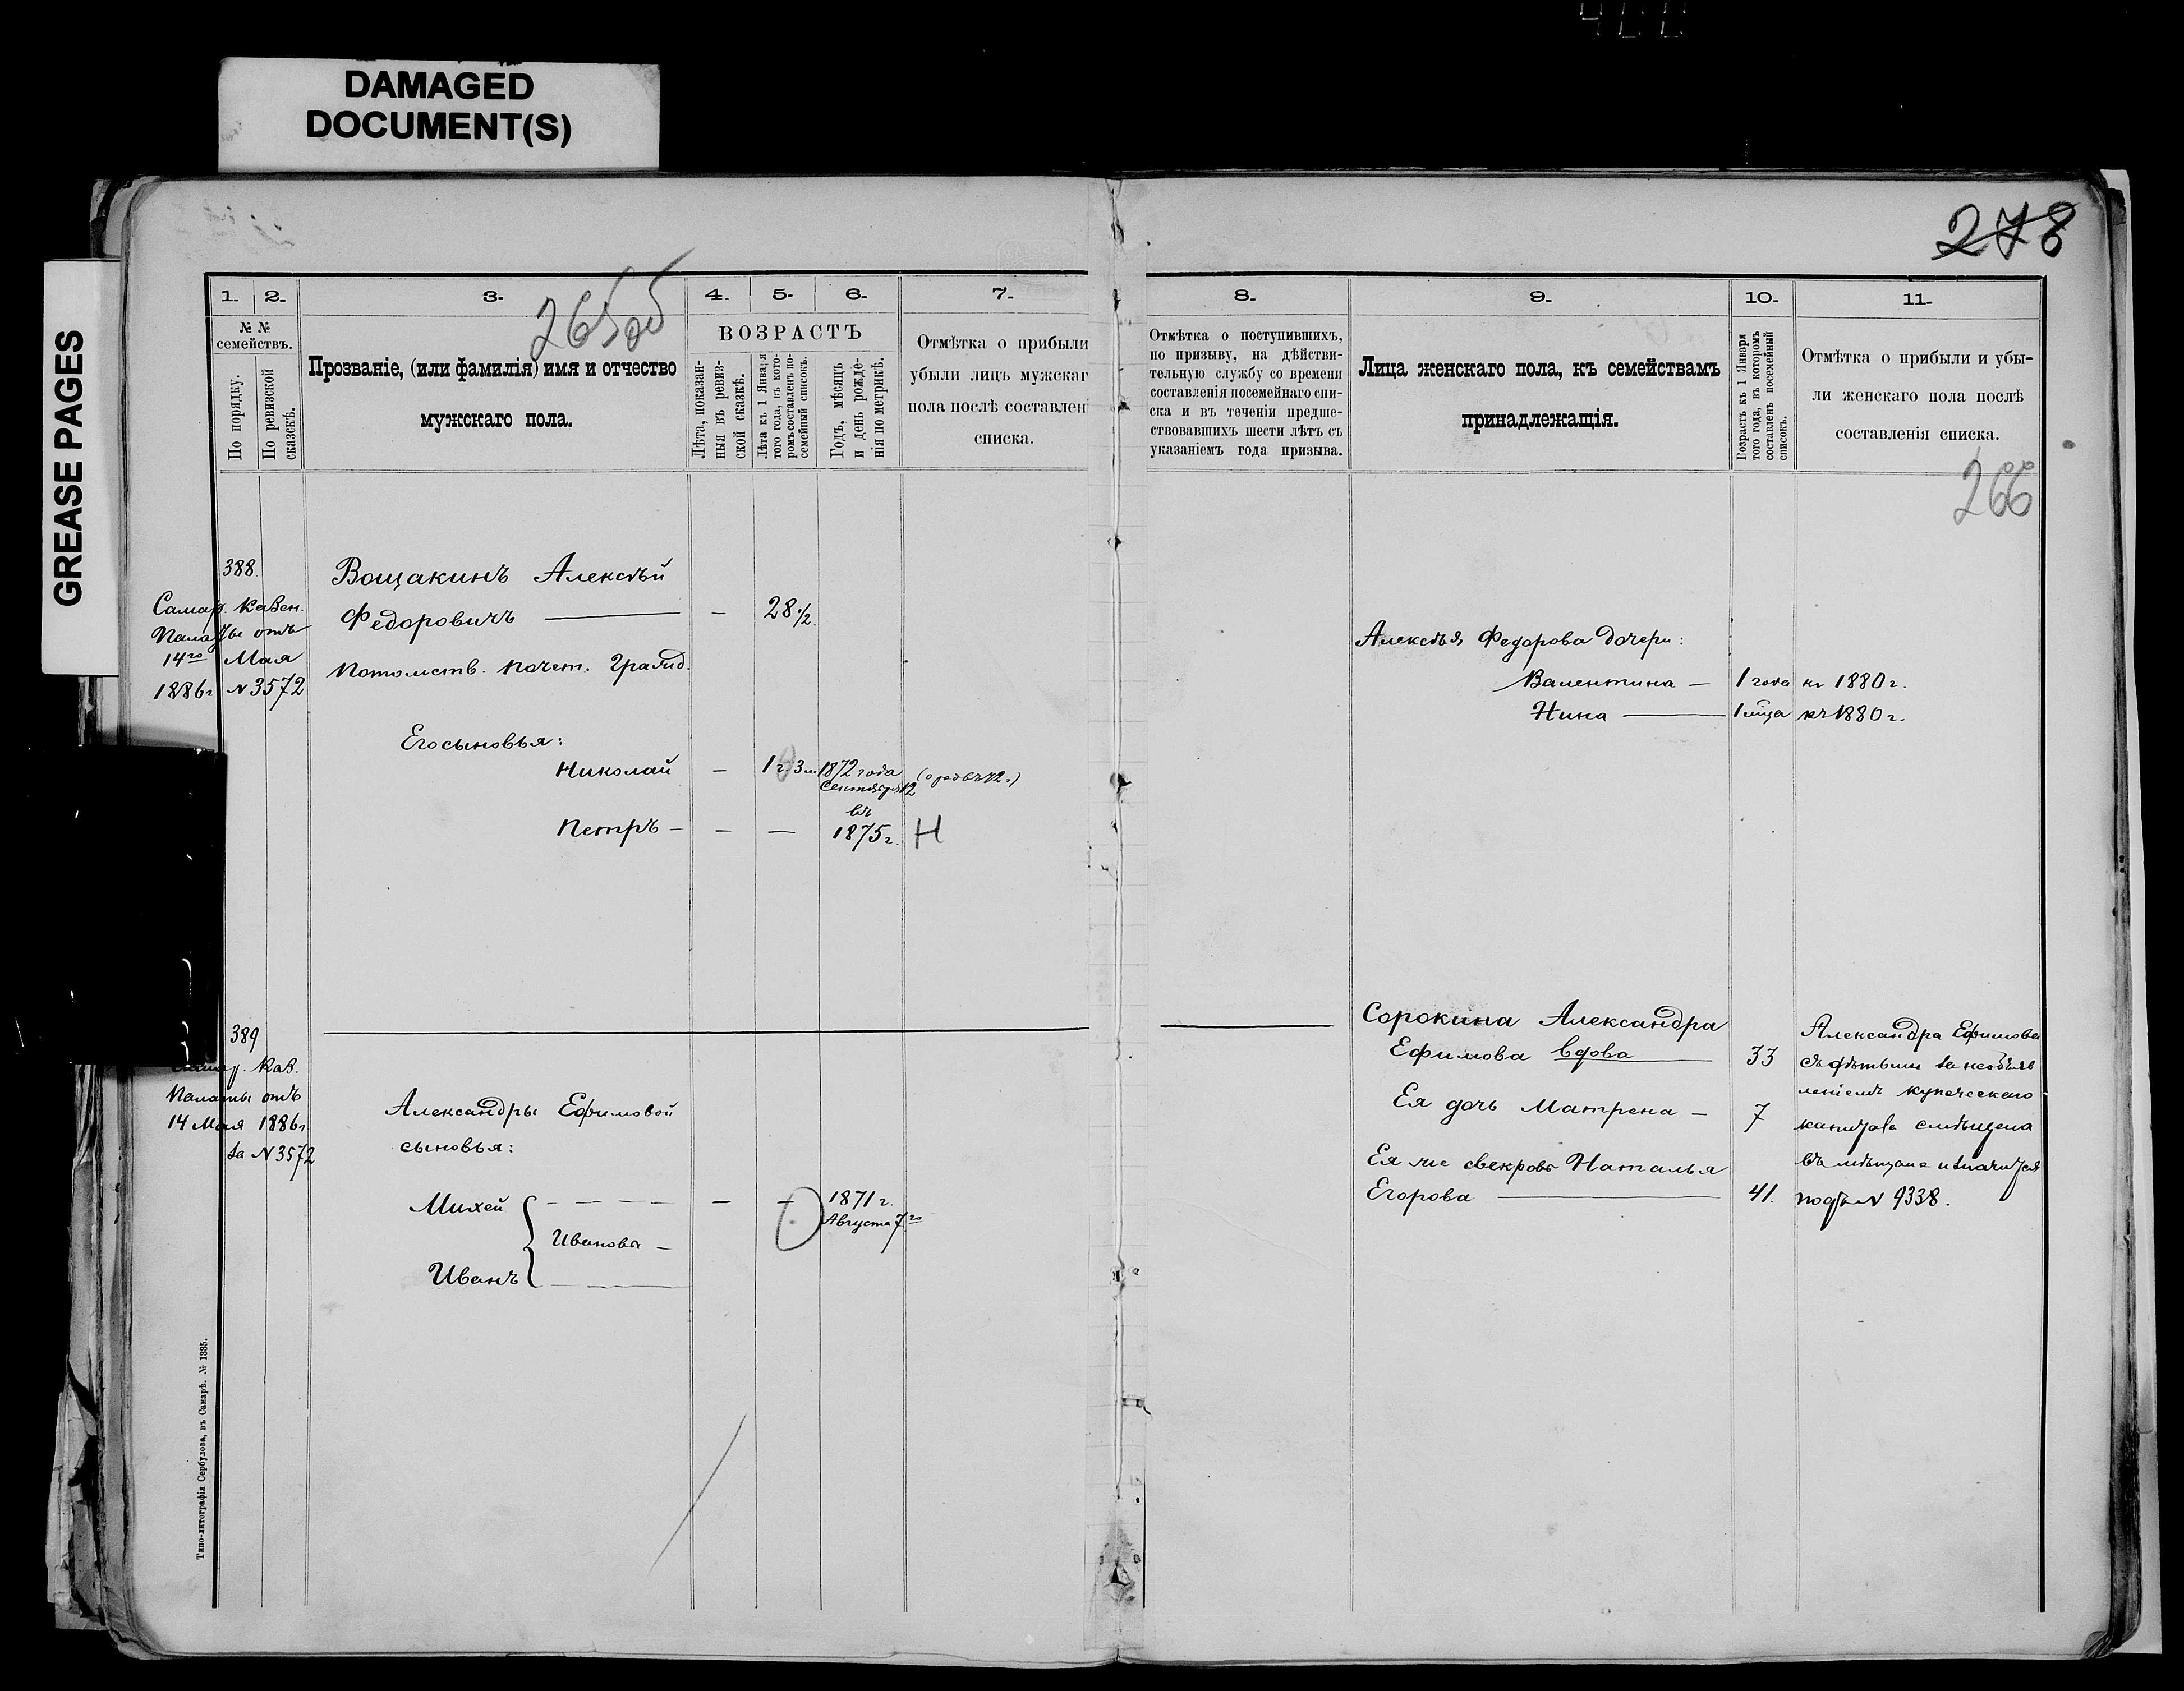 DAMAGED
DOCUMENT(S)
GREASE PAGES
278
265об
1.
2.
3.
4.
5.
6.
7.
№ №
семействъ.
По порядку.
По ревизской
сказскѣ.
Прозваніе, (или фамилія) имя и отчество
мужскаго пола.
ВОЗРАСТЪ
Лѣта, показан-
ныя въ ревиз-
ской сказкѣ.
Лѣта къ 1 Января
того года, въ кото-
ромъ составленъ по-
семейный списокъ.
Годъ, мѣсяцъ
и день рожде-
нія по метрикѣ.
Отмѣтка о прибыли
убыли лицъ мужскаг
пола послѣ составлені
списка.
388.
Самар. Казен.
Палаты отъ
14го Мая
1886г №3572
Вощакинъ Алексѣй
Федоровичъ — — 28 1/2.
Потомств. Почет. Гражд.
Его сыновья:
Николай — 1 г. 3 м. 1872 года
Сентября 12
Петръ — — — въ
1875 г. Н
389
Казен.
Палаты отъ
14 Мая 1886г
за №3572
Александры Ефимовой
сыновья:
Михей — — 1871 г.
Августа 7го
Ивановы —
Иванъ
Типо-литографія Сербулова, въ Самарѣ. № 1335.
8.
9.
10.
11.
Отмѣтка о поступившихъ,
по призыву, на дѣйстви-
тельную службу со времени
составленія посемейнаго спи-
ска и въ теченіи предше-
ствовавшихъ шести лѣтъ съ
указаніемъ года призыва.
Лица женскаго пола, къ семействамъ
принадлежащія.
Возрастъ къ 1 Января
того года, въ которомъ
составленъ посемейный
списокъ.
Отмѣтка о прибыли и убы-
ли женскаго пола послѣ
составленія списка.
266
Алексѣя Федорова дочери:
Валентина — 1 года къ 1880 г.
Нина — 1 мца къ 1880 г.
Сорокина Александра
Ефимова вдова 33
Ея дочь Матрена — 7
Ея же свекровь Наталья
Егорова 41.
Александра Ефимова
съ дѣтьми за необъяв
леніемъ купеческаго
капитала смѣщена
въ мѣщане и значится
подъ № 9338.